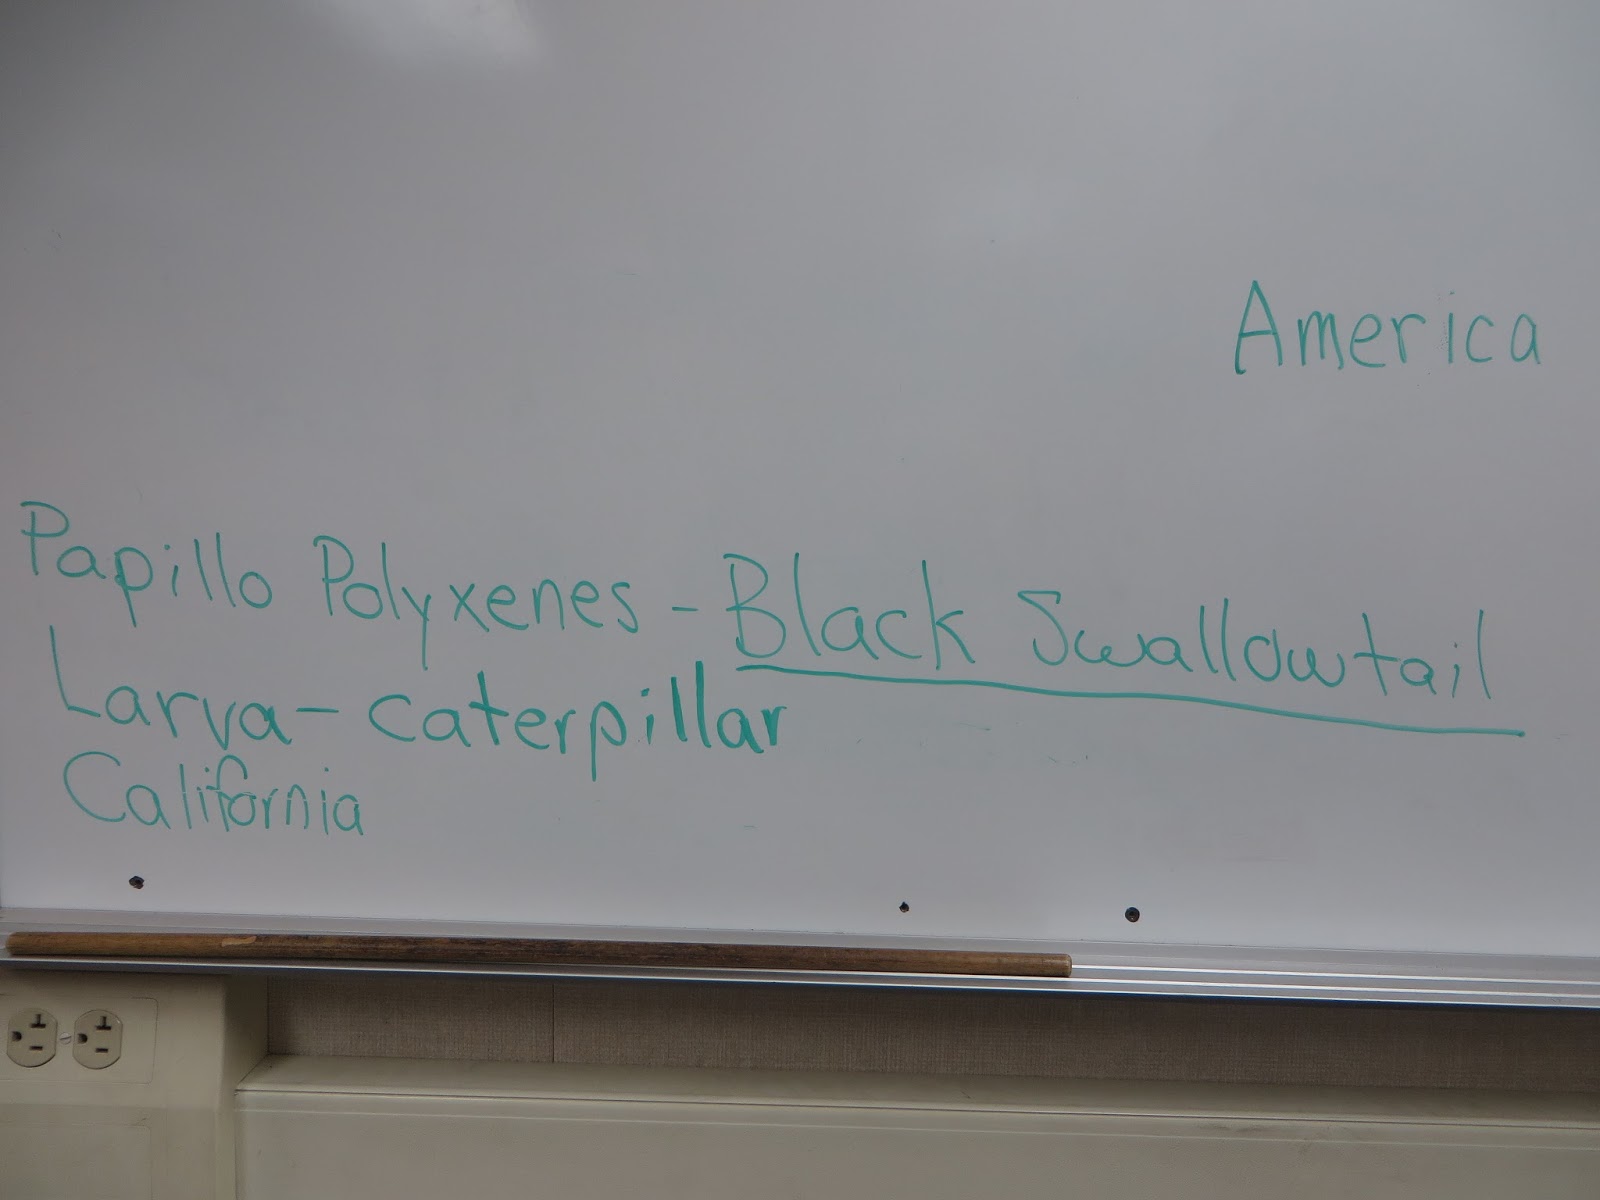 America
Papillo Polyxenes - Black Swallowtail
Larva - caterpillar
California